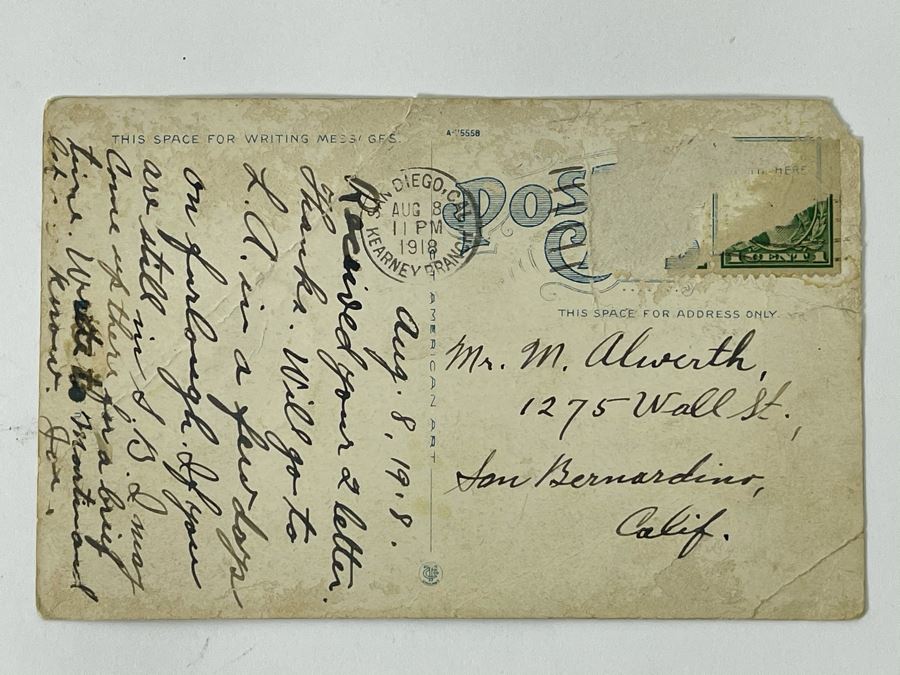 THIS SPACE FOR WRITING MESSAGES.
A-75558
Aug. 8, 1918.
Received your 2 letter.
Thanks. Will go to
L.A. in a few days
on furlough. If you
are still in S.B. I may
Come up there for a brief
time. Write to
know. Joe.
SAN DIEGO, CAL.
AUG 8
11 PM
1918
KEARNEY BRANCH
AMERICAN ART
Pos
C
HERE
1 CENT 1
THIS SPACE FOR ADDRESS ONLY.
Mr. M. Alwerth,
1275 Wall St.,
San Bernardino,
Calif.